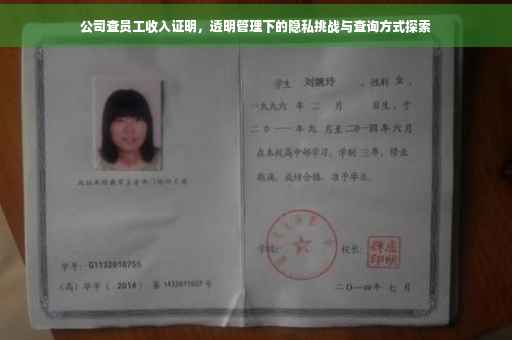 公司查员工收入证明，透明管理下的隐私挑战与查询方式探索
学生 刘婉玲 ，性别 女 ，
一九九六 年 二 月 日生，于
二〇一一年九 月至二〇一四年 六月
在本校高中部学习，学制 三年，修业
期满，成绩合格，准予毕业。
学号：G1132010755
（高）毕字（ 2014 ）第 1432011027 号
学校：
校长：
二〇一四年 七 月